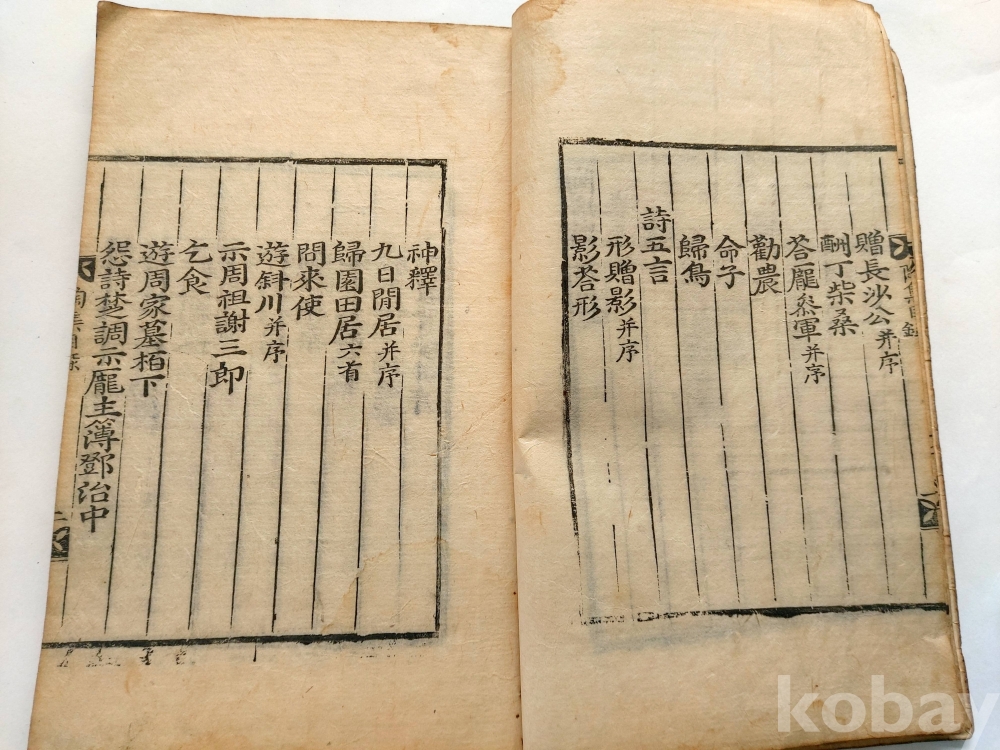 陶集目錄
贈長沙公并序
酬丁柴桑
荅龐叅軍并序
勸農
命子
歸鳥
詩五言
形贈影并序
影荅形
神釋
九日閒居并序
歸園田居六首
問來使
遊斜川并序
示周祖謝三郎
乞食
遊周家墓栢下
怨詩楚調示龐主簿鄧治中
陶集目錄
二
kobay